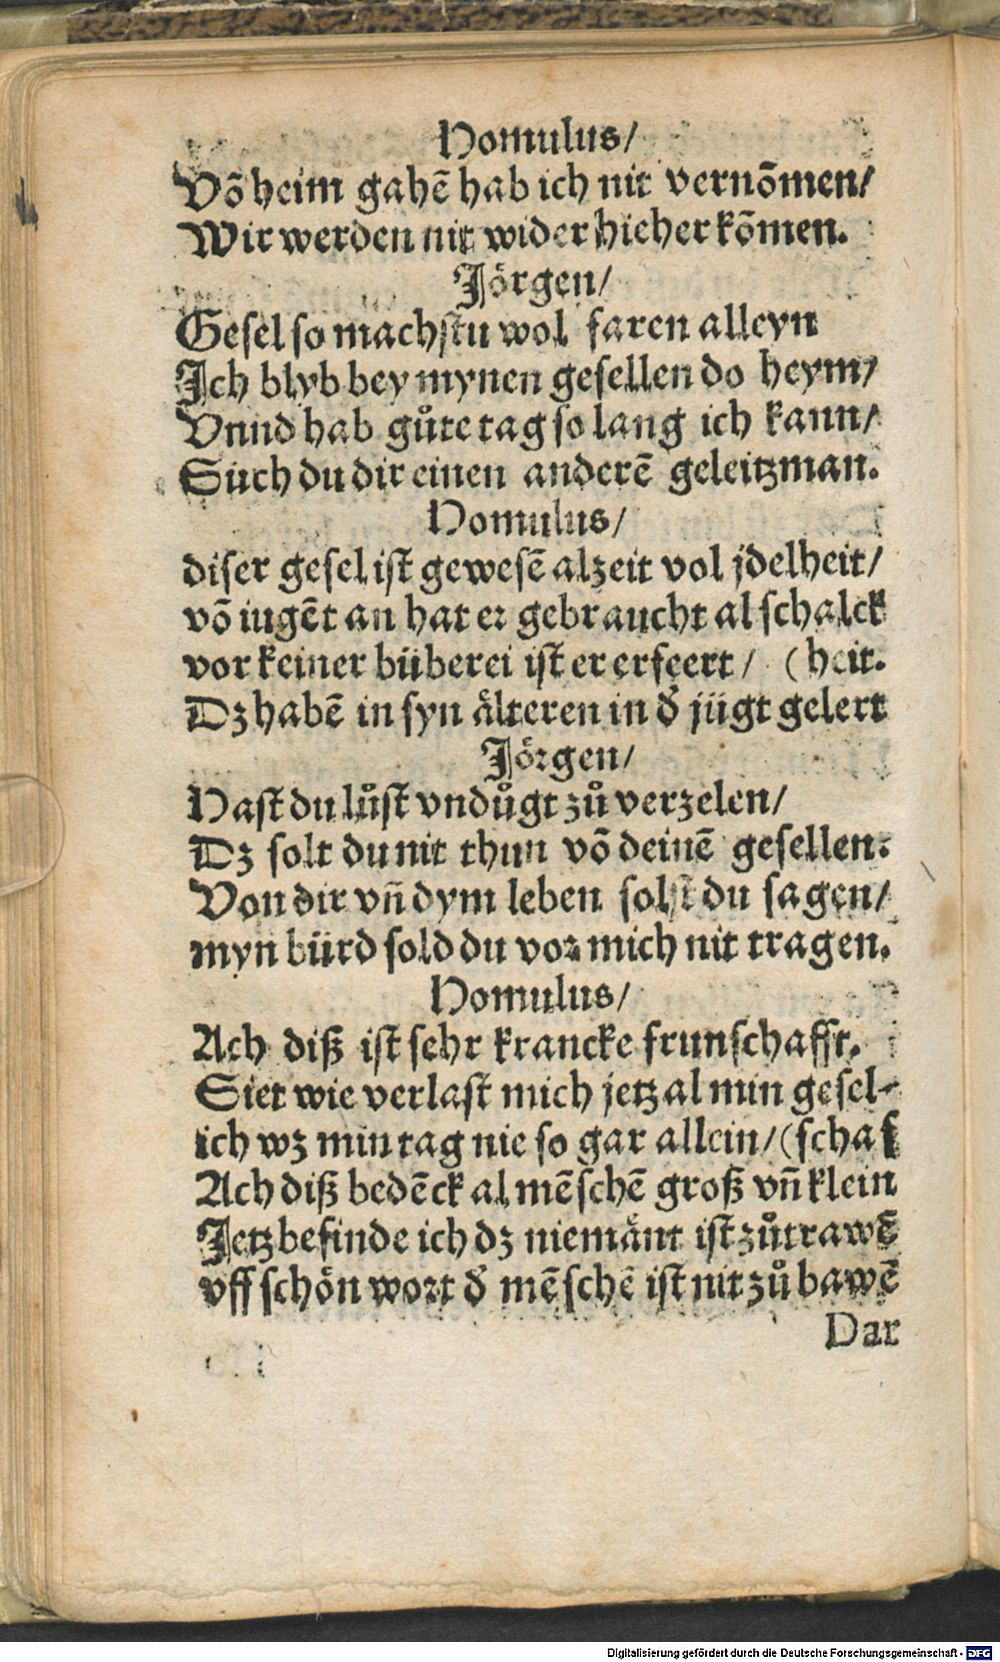 Homulus/
Võ heim gahẽ hab ich nit vernõmen/
Wir werden nit wider hieher kõmen.
Jörgen/
Gesel so machstu wol faren alleyn
Ich blyb bey mynen gesellen do heym/
Vnnd hab gůte tag so lang ich kann/
Süch du dir einen anderẽ geleitzman.
Homulus/
diser gesel ist gewesẽ alzeit vol jdelheit/
võ iugẽt an hat er gebraucht al schalck
vor keiner büberei ist er erfeert/ (heit.
Dz habẽ in syn älteren in d̕ jügt gelert
Jörgen/
Hast du lůst vndůgt zů verzelen/
Dz solt du nit thun võ deinẽ gesellen.
Von dir vñ dym leben solst du sagen/
myn bürd sold du vor mich nit tragen.
Homulus/
Ach diß ist sehr krancke frunschafft.
Siet wie verlast mich jetz al min gesel-
ich wz min tag nie so gar allein/(schaf
Ach diß bedẽck al mẽschẽ groß vñ klein
Jetz befinde ich dz niemänt ist zůtrawẽ
vff schön wort d̕ mẽschẽ ist nit zů bawẽ
Dar
Digitalisierung gefördert durch die Deutsche Forschungsgemeinschaft - DFG